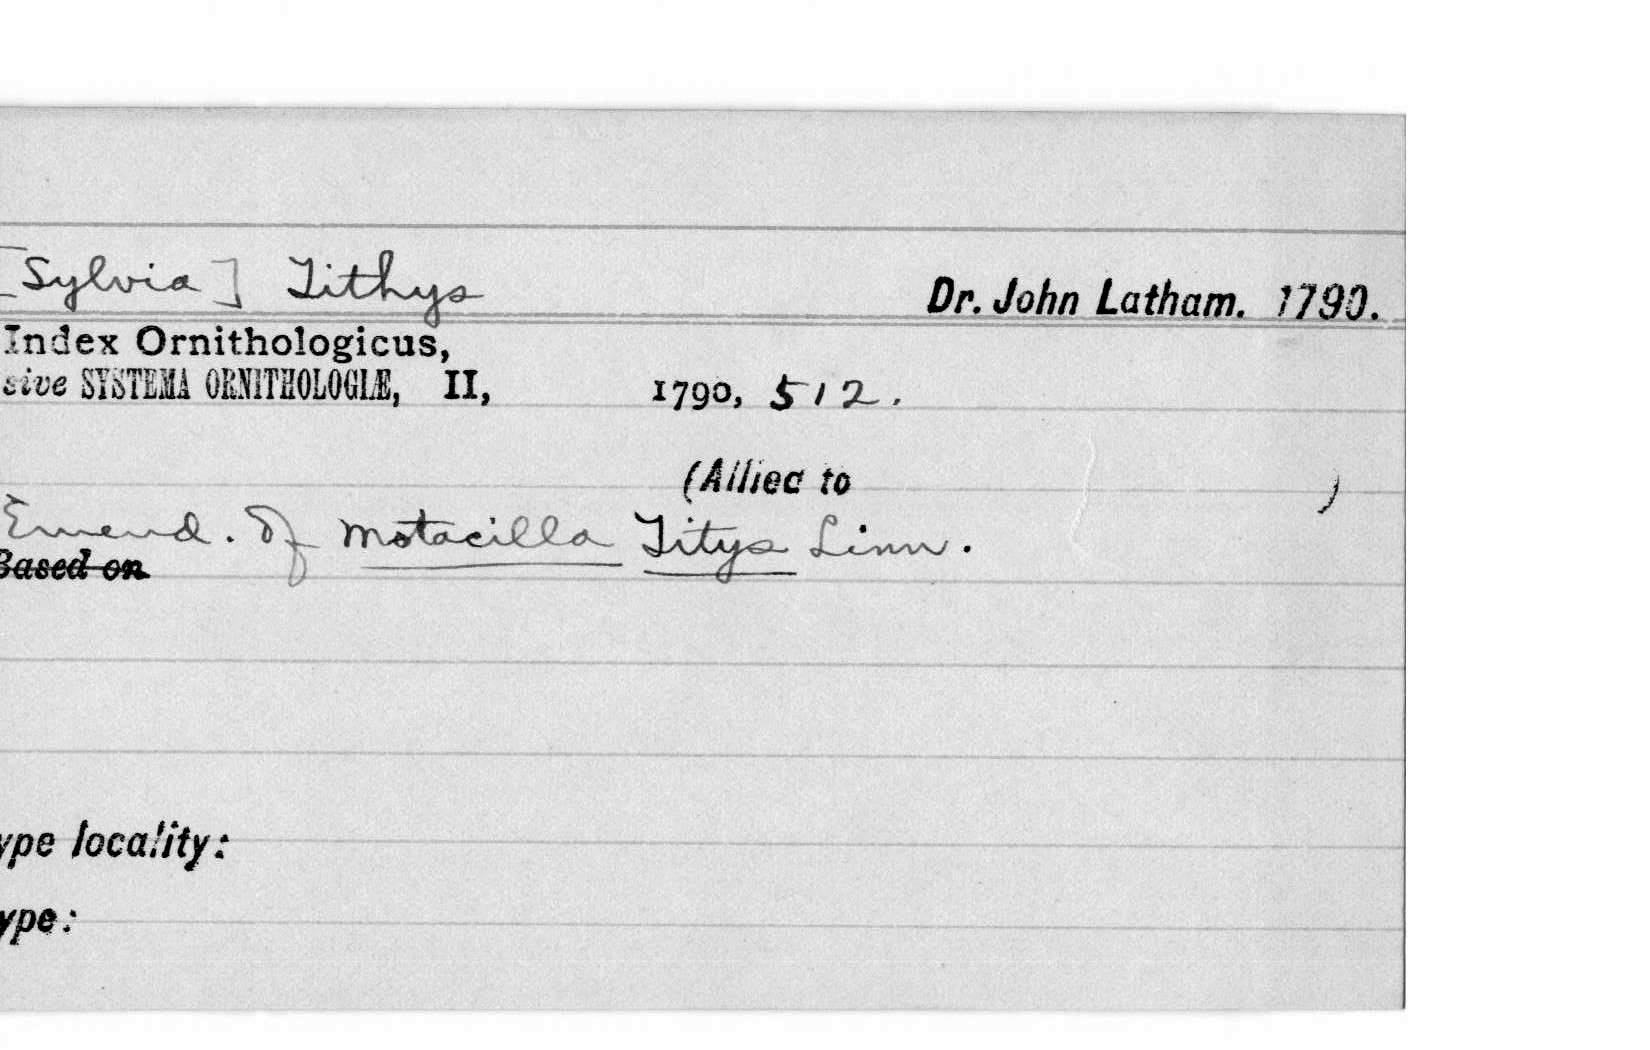 [Sylvia] Tithys Dr. John Latham. 1790.
Index Ornithologicus,
sive SYSTEMA ORNITHOLOGIÆ, II, 1790, 512.
(Allied to )
Emend. of Motacilla Titys Linn.
Based on
ype locality:
ype: